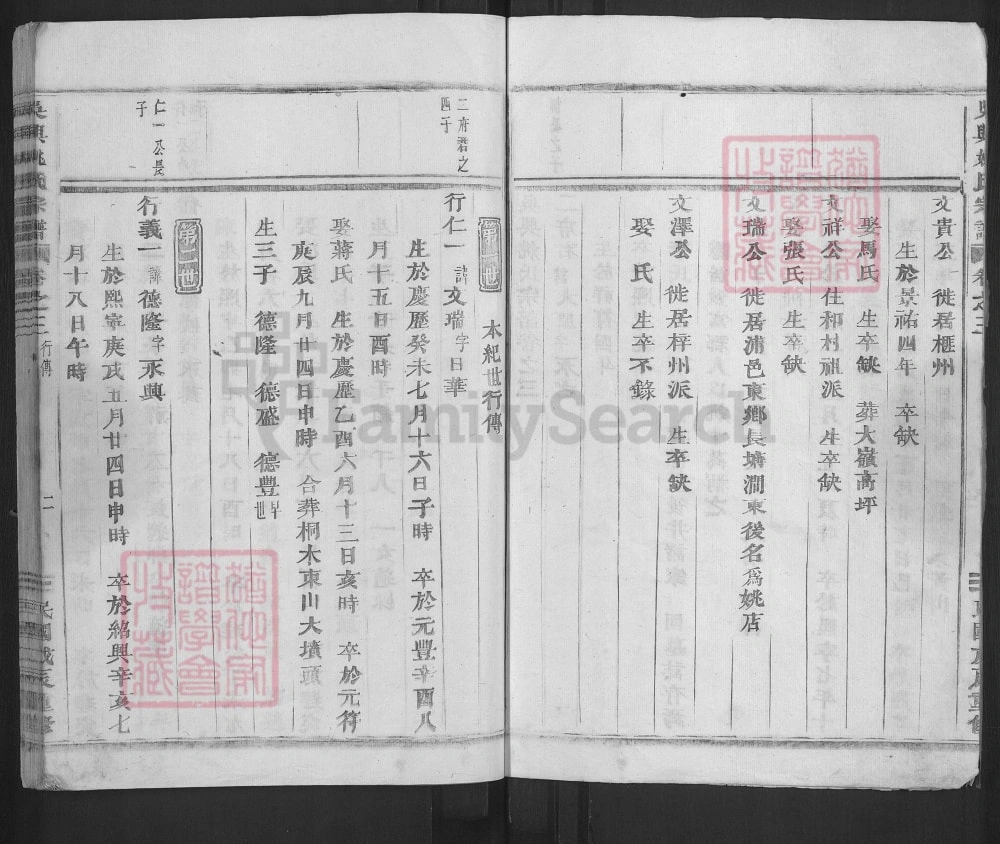 吳興姚氏宗譜 卷之三
文貴公 徙居榧州
生於景祐四年 卒缺
娶馬氏 生卒缺 葬大嶺高坪
文祥公 住和村祖派 生卒缺
娶張氏 生卒缺
文瑞公 徙居浦邑東鄉長塘澗東後名爲姚店
文澤公 徙居梓州派 生卒缺
娶 氏 生卒不錄
本紀世行傳
第一世
二府君之四子
行仁一 諱文瑞 字日華
生於慶歷癸未七月十六日子時 卒於元豐辛酉八
月十五日酉時
娶蔣氏七 生於慶歷乙酉六月十三日亥時 卒於元符
庚辰九月廿四日申時 合葬桐木東山大墳頭
生三子 德隆 德盛 德豐早世
第二世
仁一公長子
行義一 諱德隆 字永興
生於熙寧庚戌五月廿四日申時 卒於紹興辛亥七
月十八日午時
吳興姚氏宗譜 卷之三 行傳 二
FamilySearch